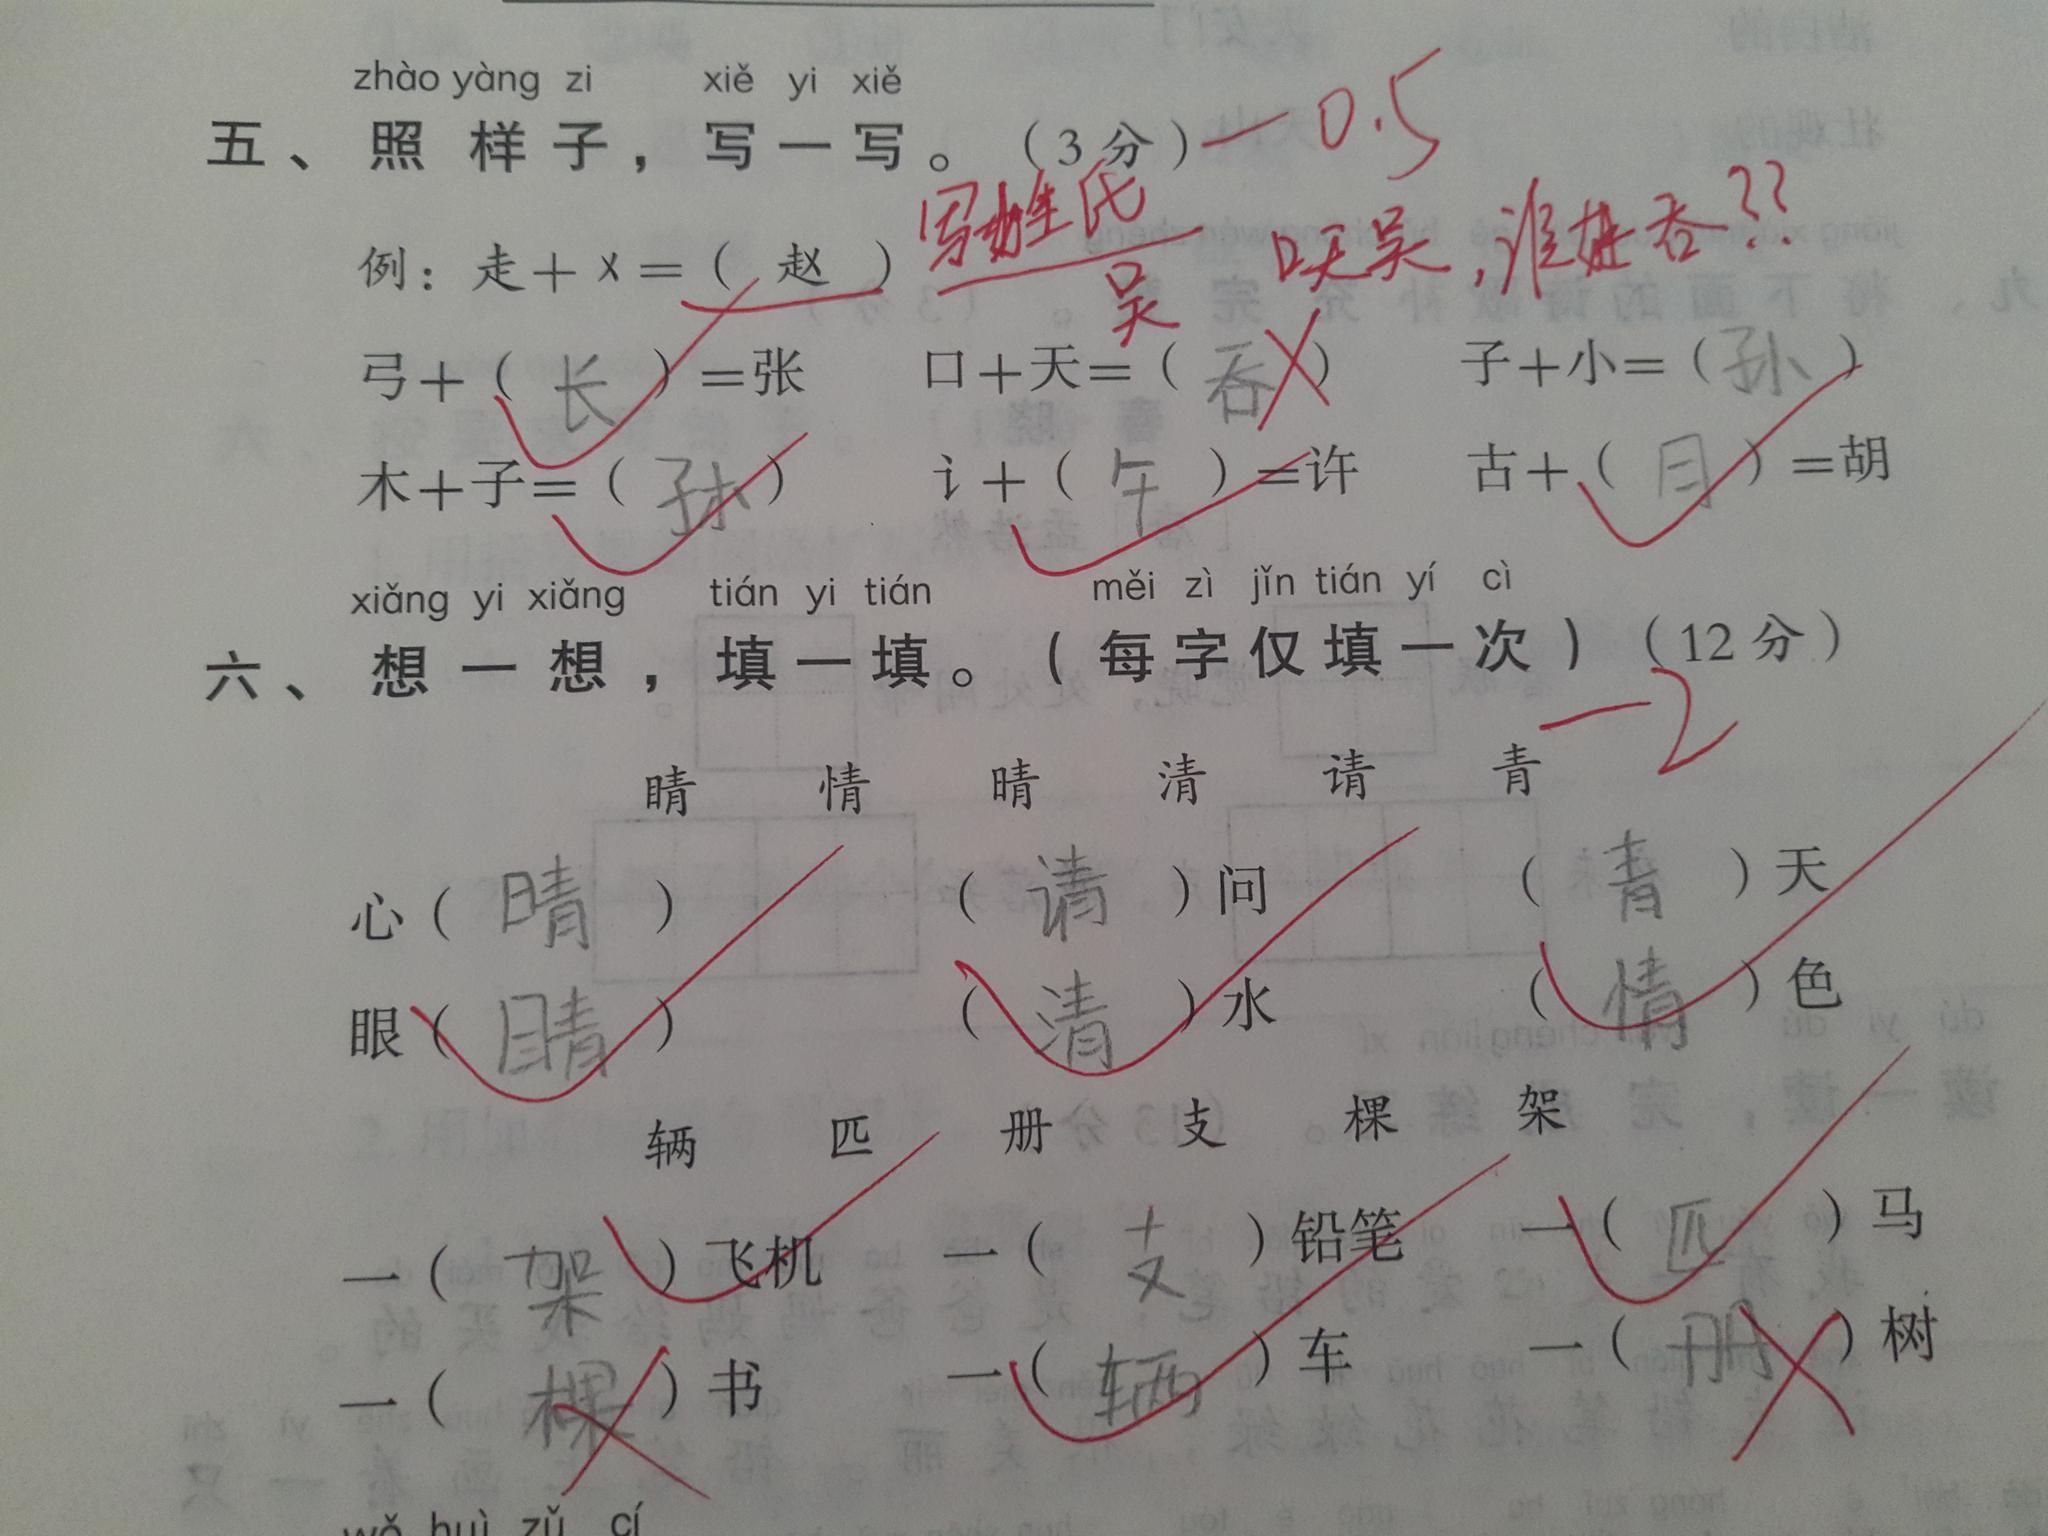 zhào yàng zi xiě yi xiě
五、照样子，写一写。（3分） －0.5
例：走＋㐅＝（赵） 写姓氏 口天吴，谁姓吞??
吴
弓＋（长）＝张 口＋天＝（吞） 子＋小＝（孙）
木＋子＝（孙） 讠＋（午）＝许 古＋（月）＝胡
xiǎng yi xiǎng tián yi tián měi zì jǐn tián yí cì
六、想一想，填一填。（每字仅填一次）（12分）
－2
睛 情 晴 清 请 青
心（晴） （请）问 （青）天
眼（睛） （清）水 （情）色
辆 匹 册 支 棵 架
一（架）飞机 一（支）铅笔 一（匹）马
一（棵）书 一（辆）车 一（册）树
wǒ huì zǔ cí